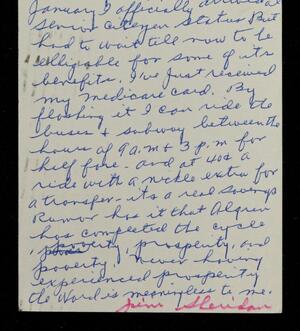 January I officially arrived at
Senior Citizen Status But
had to wait till now to be
elligable for some of its
benefits. I've just received
my Medicare card. By
flashing it I can ride the
buses & subway between the
hours of 9 a.m & 3 p.m for
half fare. and at 40¢ a
ride with a nickle extra for
a transfer - its a real savings
Rumor has it that Algren
has completed the cycle
, poverty, prosperity, and
poverty. Never having
experienced prosperity
the word is meaningless to me.
Jim Sheridan